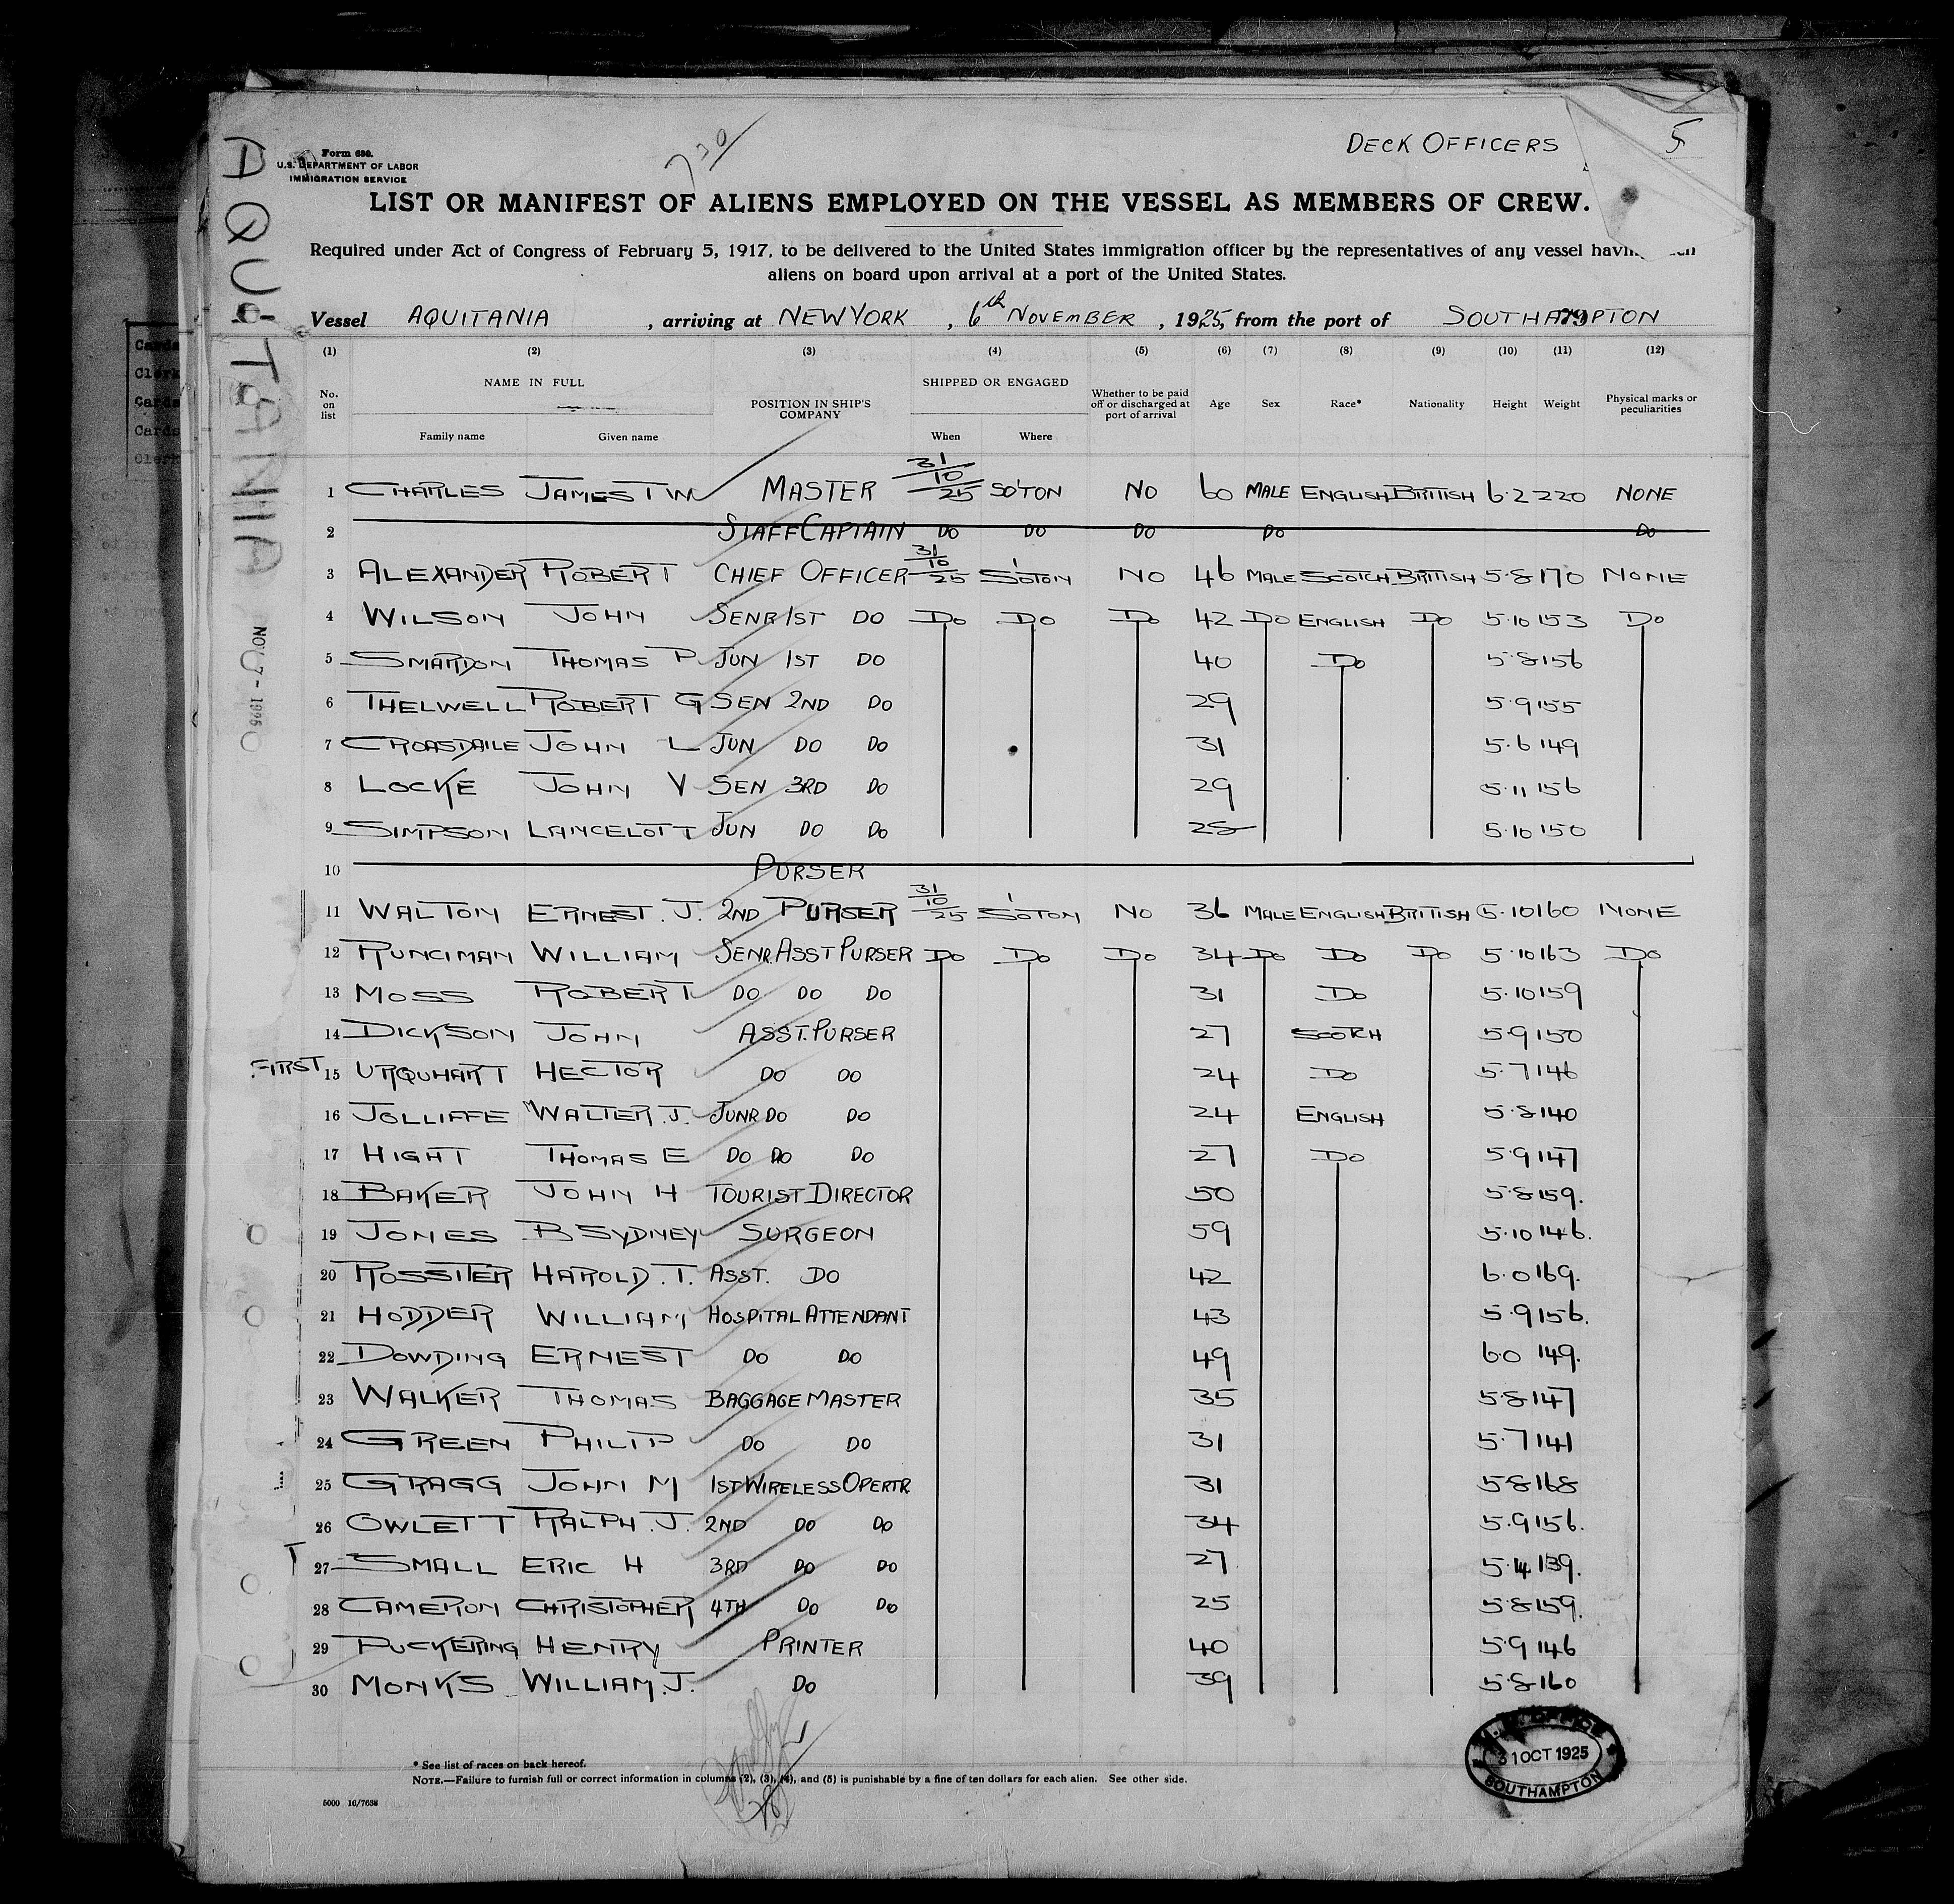 DECK OFFICERS
5
730
Form 680.
U.S. DEPARTMENT OF LABOR
IMMIGRATION SERVICE
LIST OR MANIFEST OF ALIENS EMPLOYED ON THE VESSEL AS MEMBERS OF CREW.
Required under Act of Congress of February 5, 1917, to be delivered to the United States immigration officer by the representatives of any vessel
aliens on board upon arrival at a port of the United States.
Vessel AQUITANIA, arriving at NEW YORK, 6th NOVEMBER, 1925, from the port of SOUTHAMPTON
79
(1) (2) (3) (4) (5) (6) (7) (8) (9) (10) (11) (12)
No. on list NAME IN FULL Family name Given name POSITION IN SHIP'S COMPANY SHIPPED OR ENGAGED When Where Whether to be paid off or discharged at port of arrival Age Sex Race* Nationality Height Weight Physical marks or peculiarities
1 CHARLES JAMES T W MASTER 31/10/25 SO'TON NO 60 MALE ENGLISH BRITISH 6·2 220 NONE
2 STAFF CAPTAIN DO DO DO DO DO
3 ALEXANDER ROBERT CHIEF OFFICER 31/10/25 S'OTON NO 46 MALE SCOTCH BRITISH 5·8 170 NONE
4 WILSON JOHN SENR 1ST DO DO DO DO 42 DO ENGLISH DO 5·10 153 DO
5 SMARDON THOMAS P JUN 1ST DO 40 DO 5·8 156
6 THELWELL ROBERT G SEN 2ND DO 29 5·9 155
7 CROASDAILE JOHN L JUN DO DO 31 5·6 149
8 LOCKE JOHN V SEN 3RD DO 29 5·11 156
9 SIMPSON LANCELOTT JUN DO DO 28 5·10 150
10 PURSER
11 WALTON ERNEST. J. 2ND PURSER 31/10/25 S'OTON NO 36 MALE ENGLISH BRITISH 5·10 160 NONE
12 RUNCIMAN WILLIAM SENR. ASST PURSER DO DO DO 34 DO DO DO 5·10 163 DO
13 MOSS ROBERT DO DO DO 31 DO 5·10 159
14 DICKSON JOHN ASST. PURSER 27 SCOTCH 5·9 150
FIRST 15 URQUHART HECTOR DO DO 24 DO 5·7 146
16 JOLLIFFE WALTER. J. JUNR DO DO 24 ENGLISH 5·8 140
17 HIGHT THOMAS E DO DO DO 27 DO 5·9 147
18 BAKER JOHN H TOURIST DIRECTOR 50 5·8 159.
19 JONES B SYDNEY SURGEON 59 5·10 146.
20 ROSSITER HAROLD. T. ASST. DO 42 6·0 169.
21 HODDER WILLIAM HOSPITAL ATTENDANT 43 5·9 156.
22 DOWDING ERNEST DO DO 49 6·0 149.
23 WALKER THOMAS BAGGAGE MASTER 35 5·8 147
24 GREEN PHILIP DO DO 31 5·7 141
25 GRAGG JOHN M 1ST WIRELESS OPERTR 31 5·8 168
26 OWLETT RALPH. J. 2ND DO DO 34 5·9 156.
T 27 SMALL ERIC H 3RD DO DO 27 5·4 139.
28 CAMERON CHRISTOPHER 4TH DO DO 25 5·8 159.
29 PUCKERING HENRY PRINTER 40 5·9 146
30 MONKS WILLIAM. J. DO 39 5·8 160
* See list of races on back hereof.
NOTE.—Failure to furnish full or correct information in columns (2), (3), (4), and (5) is punishable by a fine of ten dollars for each alien. See other side.
5000 16/7638
OFFICE
31 OCT 1925
SOUTHAMPTON
AQUITANIA
NOV 7 - 1925
Cards
Clerk
Cards
Cards
Clerk